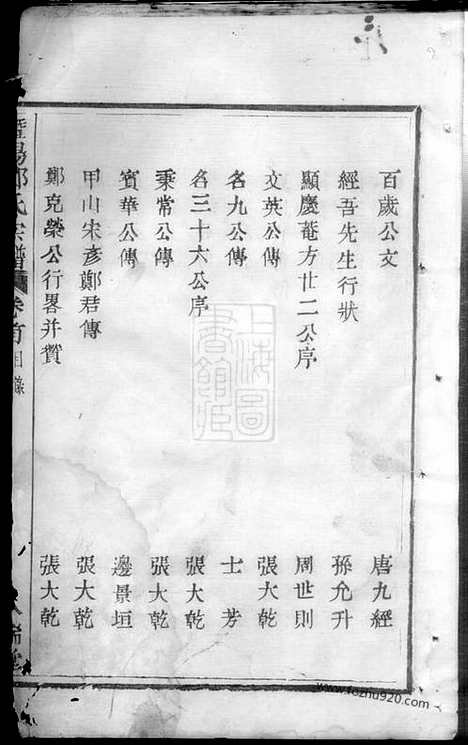 百歲公文 唐九經
經吾先生行狀 孫允升
顯慶菴方廿二公序 周世則
文英公傳 張大乾
名九公傳 士芳
名三十六公序 張大乾
秉常公傳 張大乾
賓華公傳 邊景垣
甲山宋彥鄭君傳 張大乾
鄭克榮公行畧并贊 張大乾
暨陽鄭氏宗譜 卷首 目錄
上海圖書館藏
www.fozhu920.com